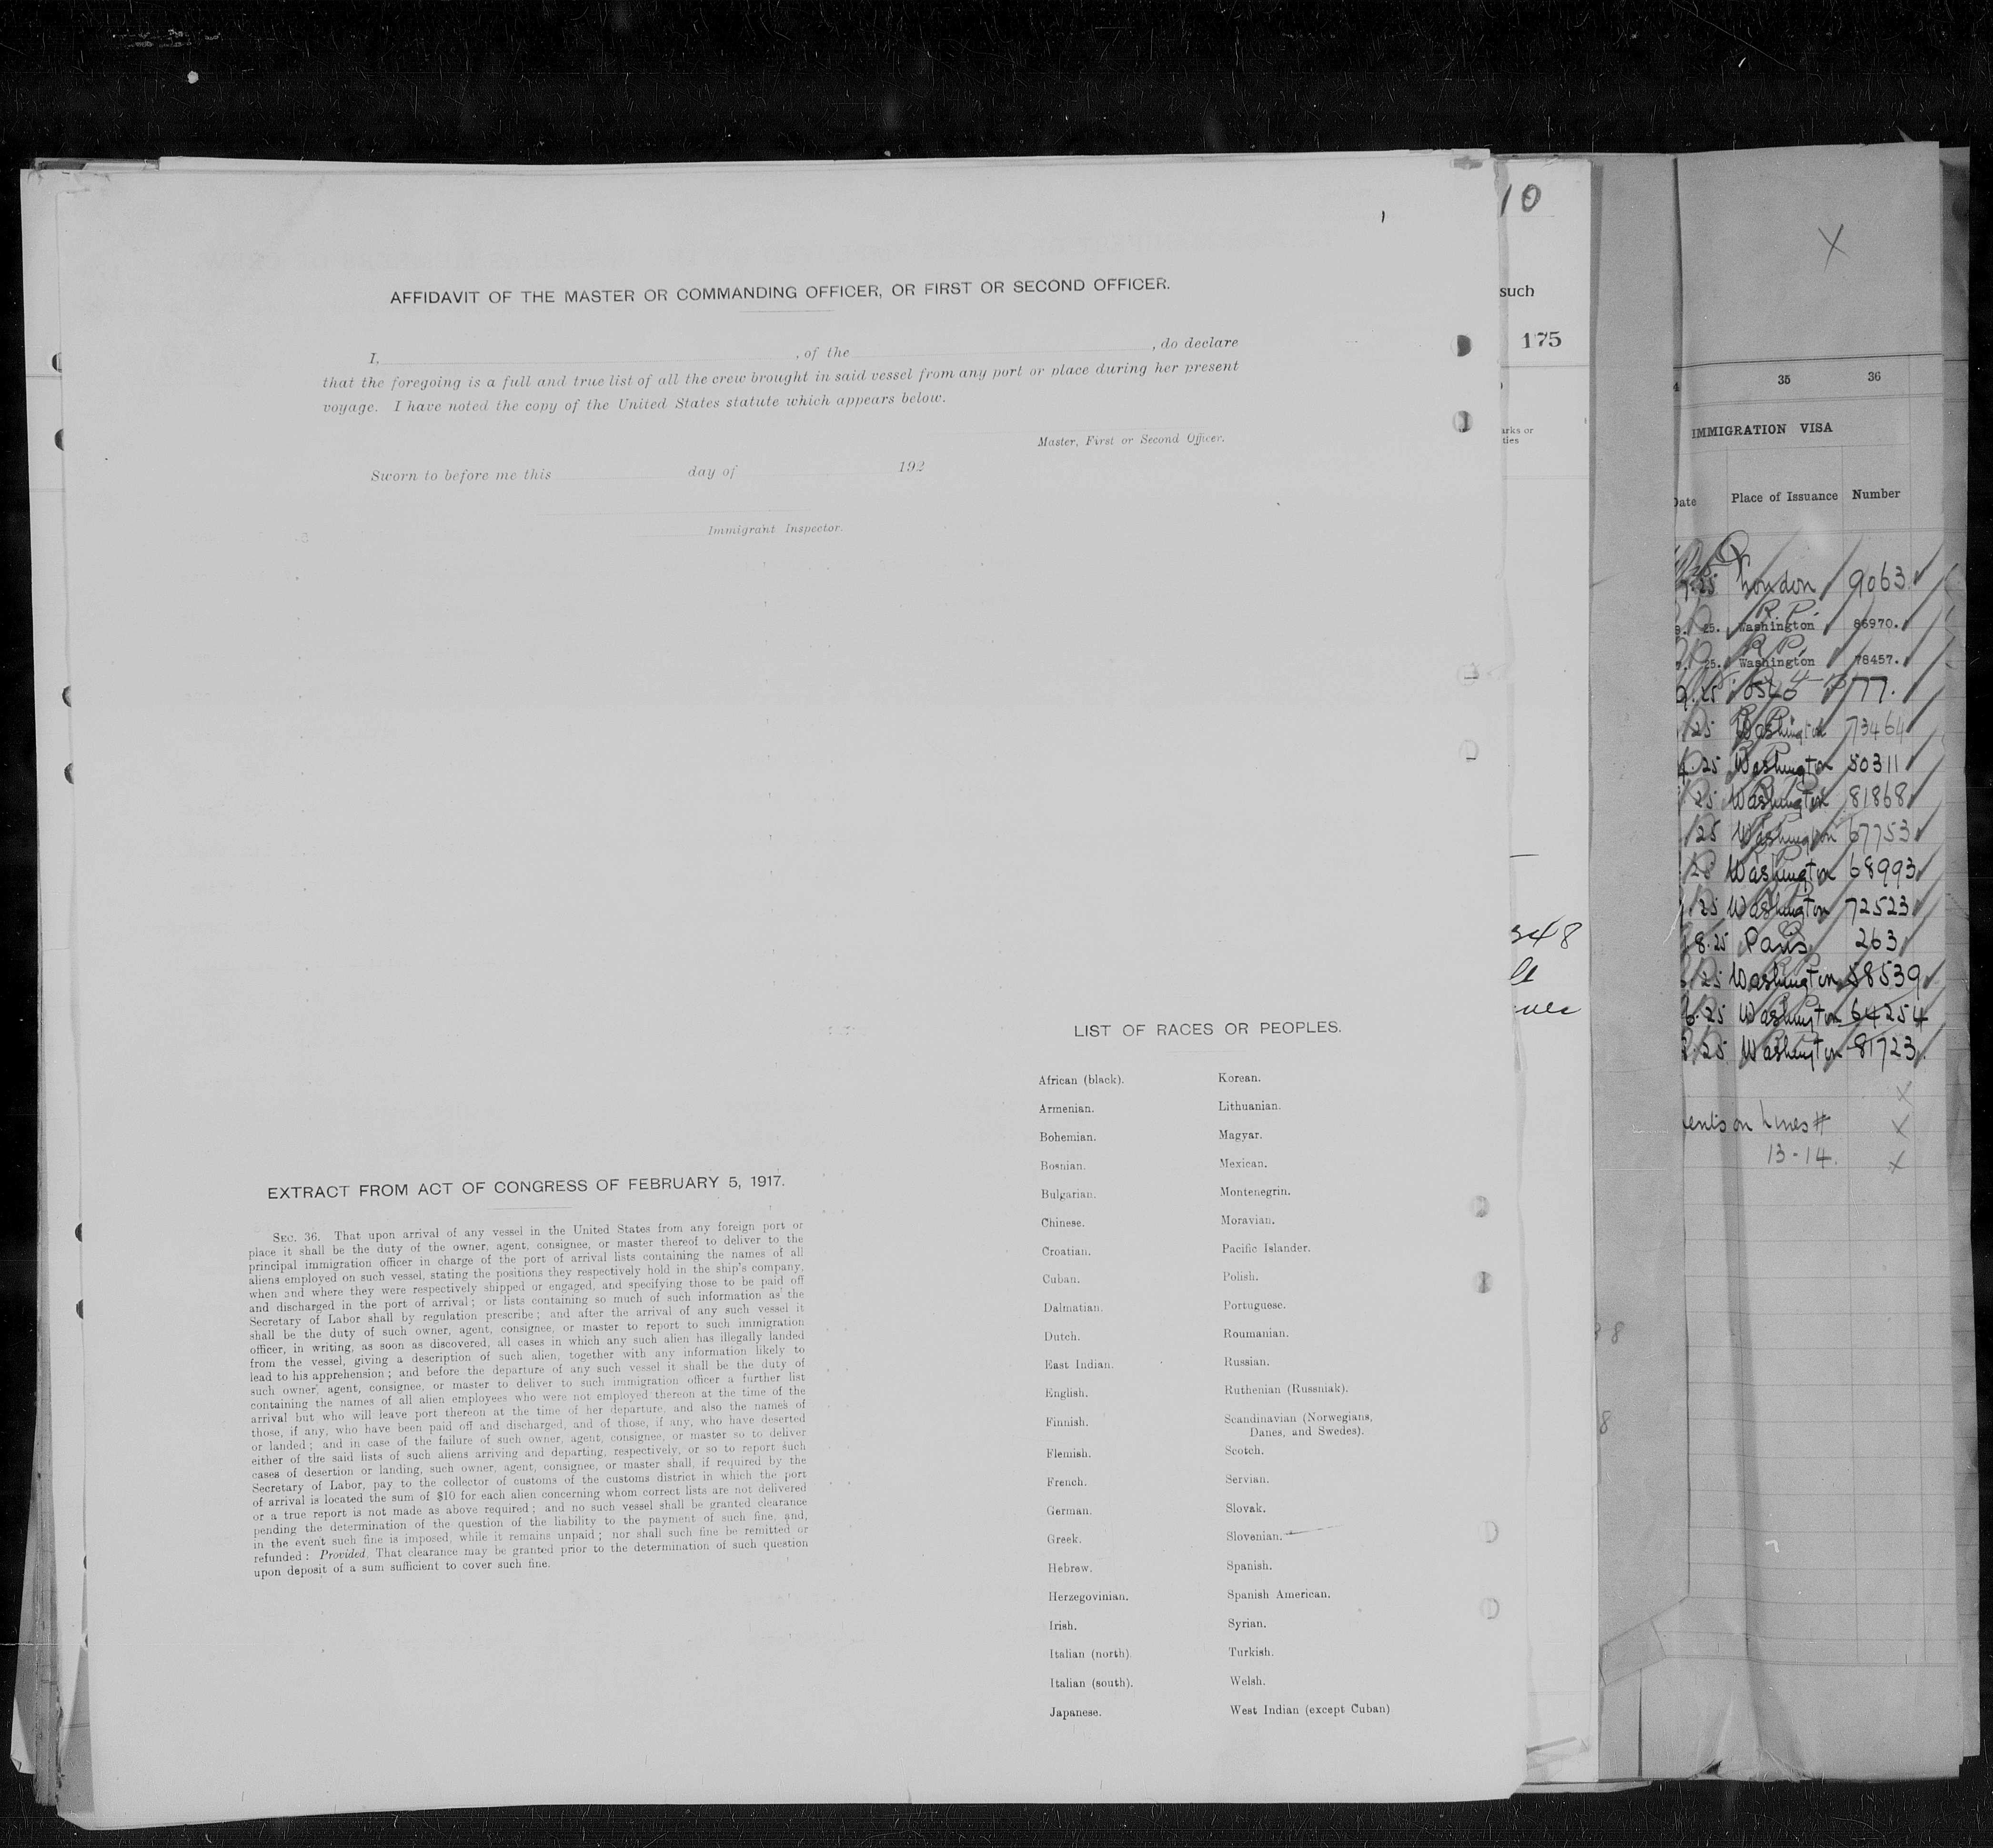 AFFIDAVIT OF THE MASTER OR COMMANDING OFFICER, OR FIRST OR SECOND OFFICER.
I, , of the , do declare
that the foregoing is a full and true list of all the crew brought in said vessel from any port or place during her present
voyage. I have noted the copy of the United States statute which appears below.
Master, First or Second Officer.
Sworn to before me this day of 192
Immigrant Inspector.
EXTRACT FROM ACT OF CONGRESS OF FEBRUARY 5, 1917.
SEC. 36. That upon arrival of any vessel in the United States from any foreign port or
place it shall be the duty of the owner, agent, consignee, or master thereof to deliver to the
principal immigration officer in charge of the port of arrival lists containing the names of all
aliens employed on such vessel, stating the positions they respectively hold in the ship's company,
when and where they were respectively shipped or engaged, and specifying those to be paid off
and discharged in the port of arrival; or lists containing so much of such information as the
Secretary of Labor shall by regulation prescribe; and after the arrival of any such vessel it
shall be the duty of such owner, agent, consignee, or master to report to such immigration
officer, in writing, as soon as discovered, all cases in which any such alien has illegally landed
from the vessel, giving a description of such alien, together with any information likely to
lead to his apprehension; and before the departure of any such vessel it shall be the duty of
such owner, agent, consignee, or master to deliver to such immigration officer a further list
containing the names of all alien employees who were not employed thereon at the time of the
arrival but who will leave port thereon at the time of her departure, and also the names of
those, if any, who have been paid off and discharged, and of those, if any, who have deserted
or landed; and in case of the failure of such owner, agent, consignee, or master so to deliver
either of the said lists of such aliens arriving and departing, respectively, or so to report such
cases of desertion or landing, such owner, agent, consignee, or master shall, if required by the
Secretary of Labor, pay to the collector of customs of the customs district in which the port
of arrival is located the sum of $10 for each alien concerning whom correct lists are not delivered
or a true report is not made as above required; and no such vessel shall be granted clearance
pending the determination of the question of the liability to the payment of such fine, and,
in the event such fine is imposed, while it remains unpaid; nor shall such fine be remitted or
refunded: Provided, That clearance may be granted prior to the determination of such question
upon deposit of a sum sufficient to cover such fine.
LIST OF RACES OR PEOPLES.
African (black).
Armenian.
Bohemian.
Bosnian.
Bulgarian.
Chinese.
Croatian.
Cuban.
Dalmatian.
Dutch.
East Indian.
English.
Finnish.
Flemish.
French.
German.
Greek.
Hebrew.
Herzegovinian.
Irish.
Italian (north).
Italian (south).
Japanese.
Korean.
Lithuanian.
Magyar.
Mexican.
Montenegrin.
Moravian.
Pacific Islander.
Polish.
Portuguese.
Roumanian.
Russian.
Ruthenian (Russniak).
Scandinavian (Norwegians,
Danes, and Swedes).
Scotch.
Servian.
Slovak.
Slovenian.
Spanish.
Spanish American.
Syrian.
Turkish.
Welsh.
West Indian (except Cuban)
10
such
175
X
35 36
IMMIGRATION VISA
Place of Issuance Number
25 London 9063
R.P.
25. Washington 86970.
R.P.
25. Washington 78457.
25 Oslo 177.
25 Washington 73464
25 Washington 80311
25 Washington 81868
25 Washington 67753
Washington 68993
25 Washington 72523
8.25 Paris 263
25 Washington 58539
25 Washington 64254
25 Washington 81723
on Lines #
13-14.